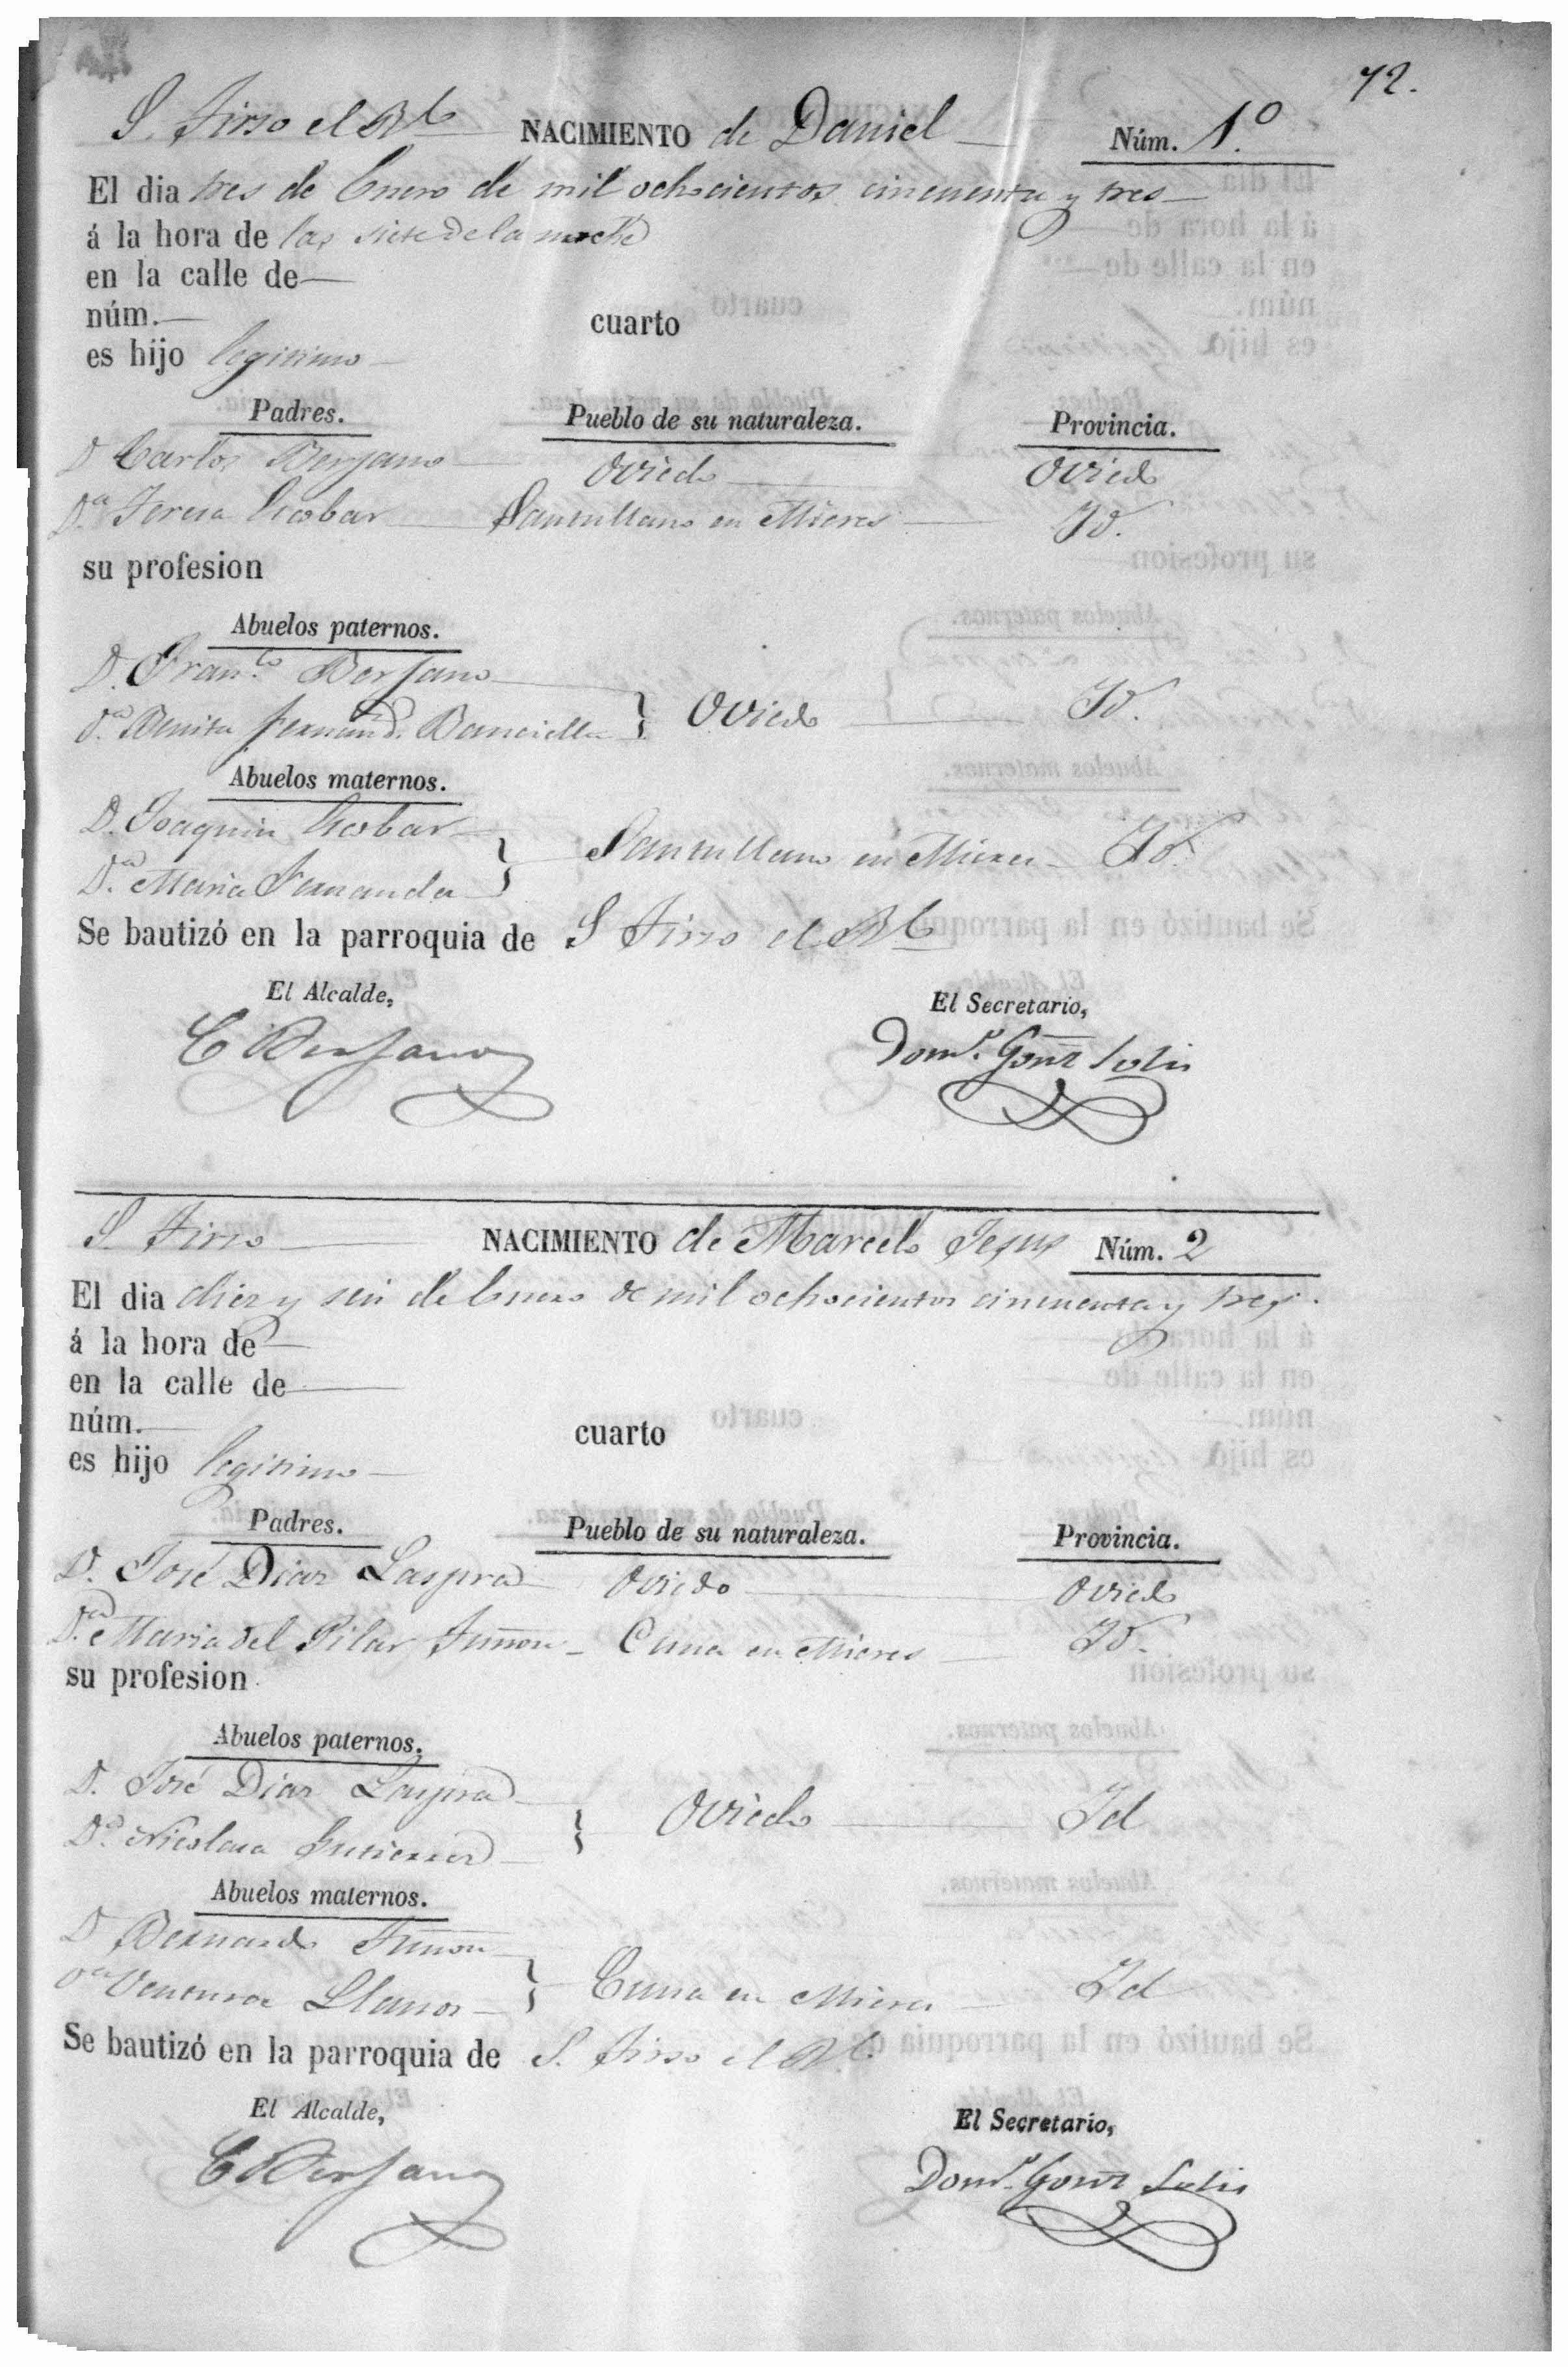 72.
S. Tirso el Rl NACIMIENTO de Daniel Núm. 1.º
El dia tres de Enero de mil ochocientos cincuenta y tres
á la hora de las siete de la noche
en la calle de
núm. cuarto
es hijo legitimo
Padres. Pueblo de su naturaleza. Provincia.
D Carlos Berjano Oviedo Oviedo
D.ª Teresa Escobar Santullano en Mieres Id.
su profesion
Abuelos paternos.
D. Fran.co Berjano
D.ª Benita Fernand. Banciella } Oviedo Id.
Abuelos maternos.
D. Joaquin Escobar
D.ª Maria Fernanda } Santullano en Mieres Id.
Se bautizó en la parroquia de S Tirso el Rl
El Alcalde, El Secretario,
C Berjano Dom.º Gonz Solis
S. Tirso NACIMIENTO de Marcelo Jesus Núm. 2
El dia diez y seis de Enero de mil ochocientos cincuenta y tres.
á la hora de
en la calle de
núm. cuarto
es hijo legitimo
Padres. Pueblo de su naturaleza. Provincia.
D. José Diaz Laspra Oviedo Oviedo
D.ª Maria del Pilar Tuñon Cuna en Mieres Id.
su profesion
Abuelos paternos.
D. José Diaz Laspra
D.ª Nicolasa Gutierrez } Oviedo Id
Abuelos maternos.
D Bernardo Tuñon
D.ª Ventura Llanos } Cuna en Mieres Id
Se bautizó en la parroquia de S. Tirso el Rl.
El Alcalde, El Secretario,
C Berjano Dom.º Gonz Solis